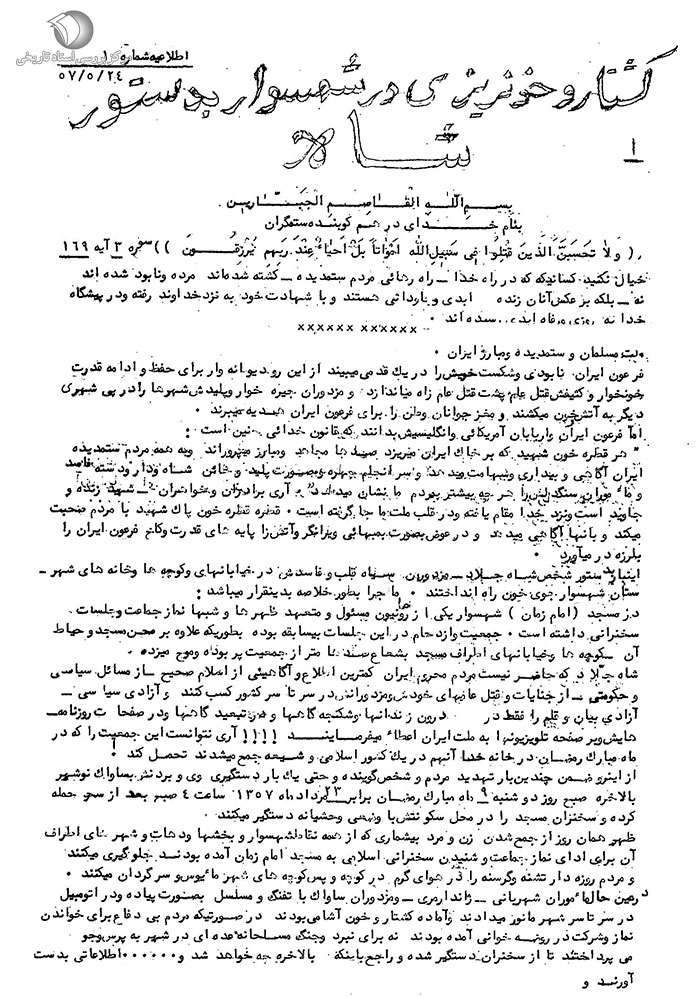 مرکز بررسی اسناد تاریخی
اطلاعیه شماره ۱
۵۷/۵/۲۴
کشتار و خونریزی در شهسوار بدستور
شاه
۱
بسم الله القاصم الجبارین
بنام خدای درهم کوبنده ستمگران
(( ولا تحسبن الذین قتلوا فی سبیل الله امواتا بل احیاء عند ربهم یرزقون )) سوره ۳ آیه ۱۶۹
خیال نکنید کسانیکه که در راه خدا ــ راه رهائی مردم ستمدیده ــ کشته شده‌اند مرده ونابود شده اند
نه ــ بلکه بر عکس آنان زنده ابدی وجاودانی هستند و با شهادت خود به نزد خداوند رفته ودر پیشگاه
خدا به روزی ورفاه ابدی رسیده اند ۰
xxxxxx xxxxxx
ملت مسلمان و ستمدیده ومبارز ایران ۰
فرعون ایران نابودی وشکست خویش را در یک قدمی میبیند از این رو دیوانه وار برای حفظ و ادامه قدرت
خونخوار و کثیفش قتل عام پشت قتل عام راه میاندازد و مزدوران جیره خوار وپلیدش شهرها را در پی شهری
دیگر به آتش خون میکشند و مغز جوانان وطن را برای فرعون ایران هدیه میبرند ۰
اما فرعون ایران واربابان آمریکائی وانگلیسیش بدانند که قانون خدائی چنین است :
" هر قطره خون شهید که بر خاک ایران میریزد صدها مجاهد ومبارز میپروراند وبه همه مردم ستمدیده
ایران آگاهی و بیداری وشهامت میدهد و سر انجام چهره وصورت پلید و خائن شاه ودار ودسته فاسد
را هر چه بیشتر بمردم ما نشان میدهد " آری برادران وخواهران ــ شهید زنده و
جاوید است ونزد خدا مقام یافته ودر قلب ملت ما جا گرفته است ۰ قطره قطره خون پاک شهید با مردم صحبت
میکند و بآنها آگاهی میدهد و در عوض بصورت بمبهائی ویرانگر وآتش زا پایه های قدرت وکاخ فرعون ایران را
بلرزه در میآورد ۰
اینبار بدستور شخص شاه جلاد ــ مزدوران سیاه قلب و فاسدش در خیابانهای وکوچه ها وخانه های شهر ــ
ستان شهسوار جوی خون راه انداختند ۰ ما جرا بطور خلاصه بدینقرار میباشد :
در مسجد ( امام زمان ) شهسوار یکی از روحانیون مسئول و متعهد ظهر ها و شبها نماز جماعت وجلسات ــ
سخنرانی داشته است ۰ جمعیت وازدحام در این جلسات بیسابقه بوده بطوریکه علاوه بر صحن مسجد و حیاط
آن ــ کوچه ها وخیابانهای اطراف مسجد بشعاع صدها متر از جمعیت پر بوده وموج میزده ۰
شاه جلاد که حاضر نیست مردم محروم ایران کمترین اطلاع و آگاهیئی از اسلام صحیح ــ از مسائل سیاسی
و حکومتی ــ از جنایات و قتل عامهای خودش ومزدورانش در سر تا سر کشور کسب کنند و آزادی سیا سی ــ
آزادی بیان و قلم را فقط در درون زندانها وشکنجه گاهها و تبعید گاهها ودر صفحا ت روزنامه ــ
هایش وبر صفحه تلویزیونها به ملت ایران اعطاء میفرمایند !!!! آری نتوانست این جمعیت را که در
ماه مبارک رمضان در خانه خدا آنهم در یک کشور اسلامی و شیعه جمع میشدند تحمل کند !
از اینرو ضمن چندین بار تهدید مردم و شخص گوینده و حتی یک بار دستگیری وی و بردنش بساواک نوشهر
بالاخره صبح روز دوشنبه ۹ ماه مبارک رمضان برابر ۲۳ مرداد ماه ۱۳۵۷ ساعت ۴ صبح بعد از سحر حمله
کرده و سخنران مسجد را در محل سکونتش با وضعی وحشیانه دستگیر میکنند ۰
ظهر همان روز از جمع شدن زن و مرد بیشماری که از همه نقاط شهسوار و بخشها ودهات و شهر های اطراف
آن برای ادای نماز جماعت و شنیدن سخنرانی اسلامی به مسجد امام زمان آمده بودند جلوگیری میکنند
و مردم روزه دار تشنه وگرسنه را در هوای گرم در کوچه و پس کوچه های شهر مأیوس و سر گردان میکنند ۰
در همین حال مأموران شهربانی ــ ژاندارمری ــ ومزدوران ساواک با تفنگ و مسلسل بصورت پیاده ودر اتومبیل
در سر تا سر شهر مانور میدادند وآماده کشتار و خون آشامی بودند در صورتیکه مردم بی دفاع برای خواندن
نماز وشرکت در روضه خوانی آمده بودند نه برای نبرد وجنگ مسلحانه عده ای در شهر به پرس وجو
می پرداختند تا از سخنران دستگیر شده و راجع باینکه بالاخره چه خواهد شد و ۰۰۰۰۰۰ اطلاعاتی بدست
آورند و